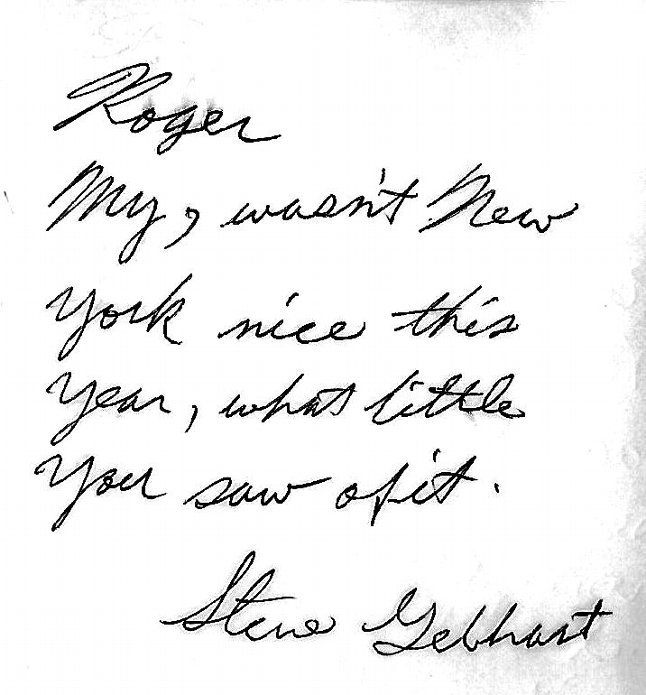 Roger
My, wasn't New
York nice this
Year, what little
You saw of it.
Steve Gebhart